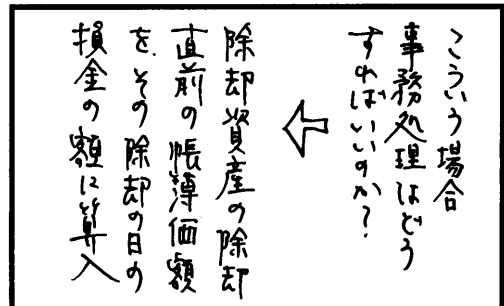 こういう場合
事務処理はどう
すればいいのか？
除却資産の除却
直前の帳簿価額
を、その除却の日の
損金の額に算入